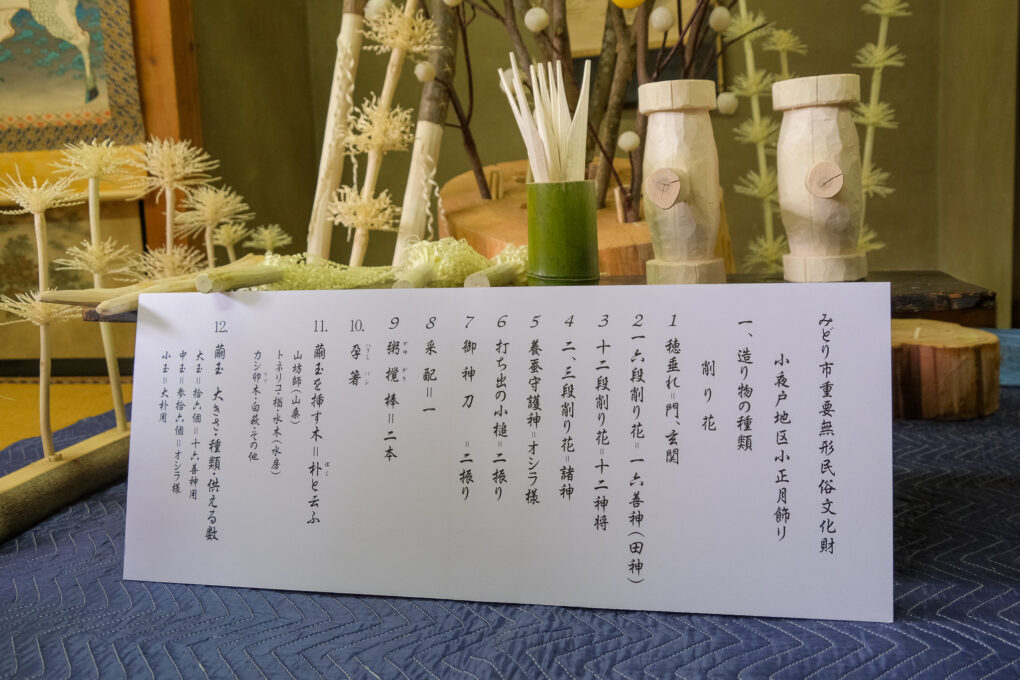 みどり市重要無形民俗文化財
小夜戸地区小正月飾り
一、造り物の種類
削り花
1 穂垂れ＝門、玄関
2 一六段削り花＝一六善神（田神）
3 十二段削り花＝十二神将
4 二、三段削り花＝諸神
5 養蚕守護神＝オシラ様
6 打ち出の小槌＝二振り
7 御神刀＝二振り
8 采配＝一
9 粥攪棒＝二本
10. 孕箸
11. 繭玉を挿す木＝朴と云ふ
山坊師（山桑）
トネリコ楢・水木（水房）
カシ卯木・白萩・その他
12. 繭玉 大きさ・種類・供える数
大玉＝拾六個＝十六善神用
中玉＝参拾六個＝オシラ様
小玉＝大朴用